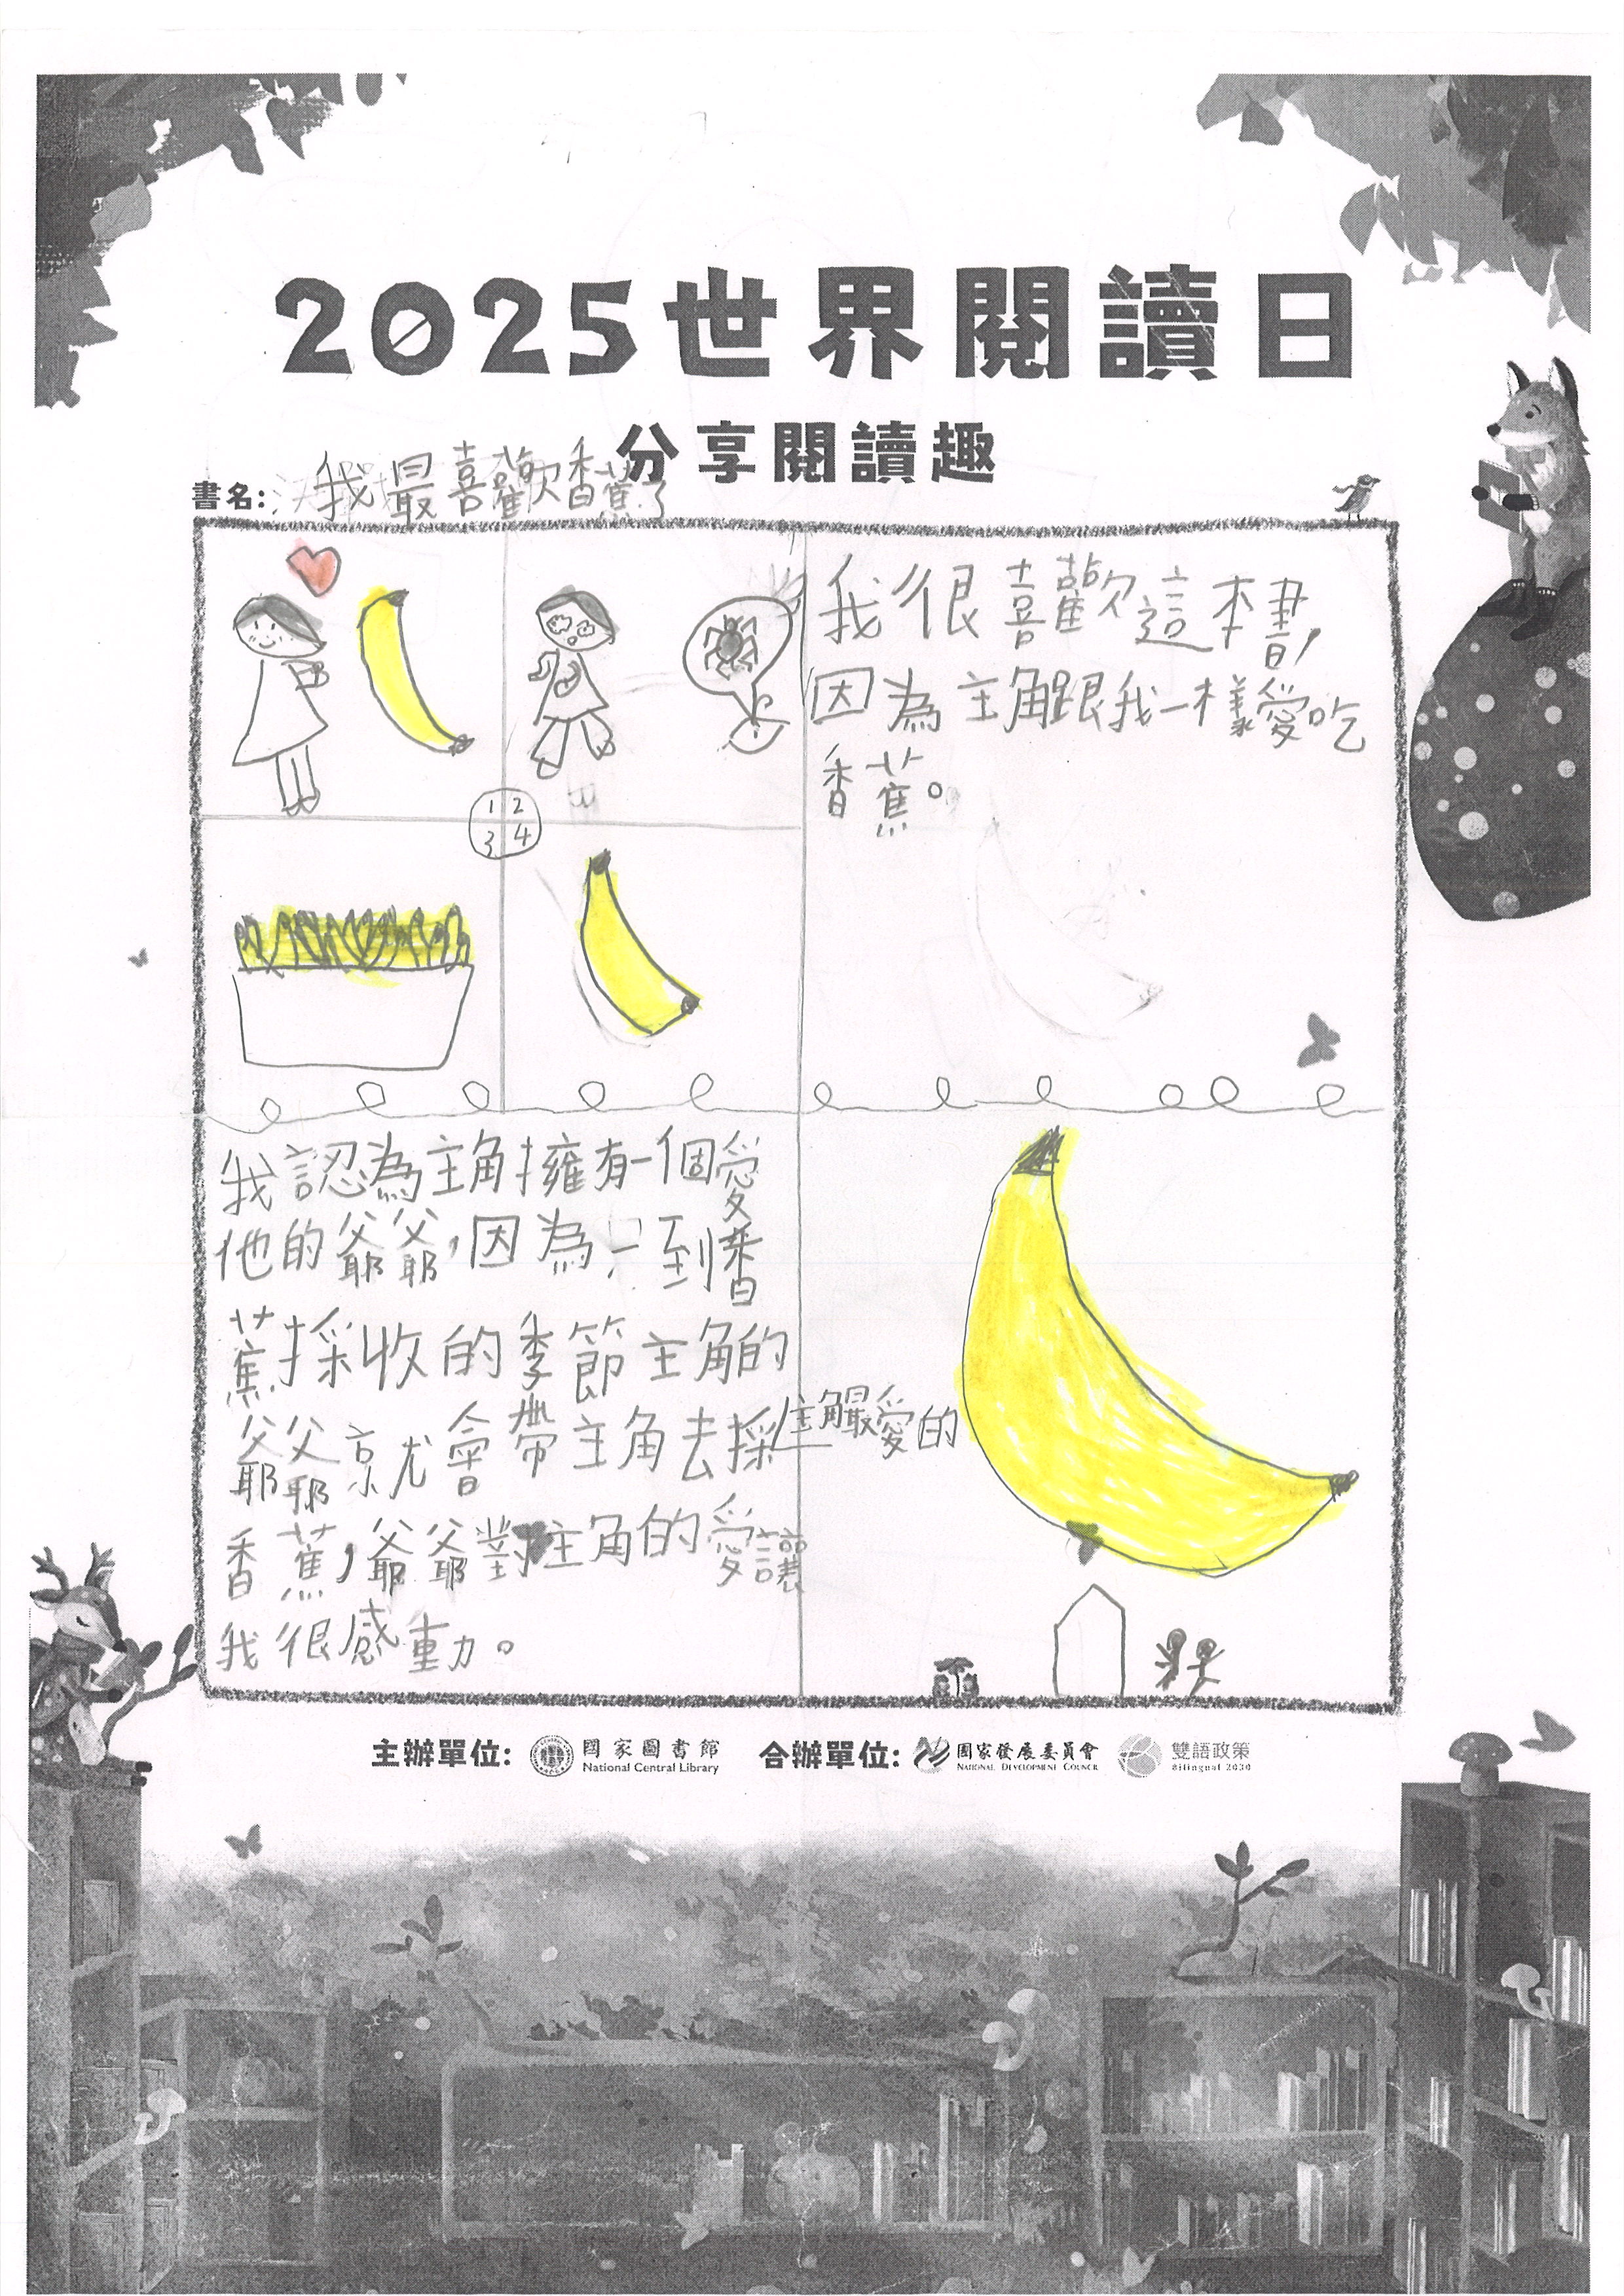 2025世界閱讀日
分享閱讀趣
書名:我最喜歡香蕉了
1 2
3 4
我很喜歡這本書,
因為主角跟我一樣愛吃
香蕉。
我認為主角擁有一個愛
他的爺爺,因為一到香
蕉採收的季節主角的
爺爺就會帶主角去採
香蕉,爺爺對主角的愛讓
我很感動。
主角最愛的
主辦單位: 國家圖書館 National Central Library 合辦單位: 國家發展委員會 NATIONAL DEVELOPMENT COUNCIL 雙語政策 Bilingual 2030